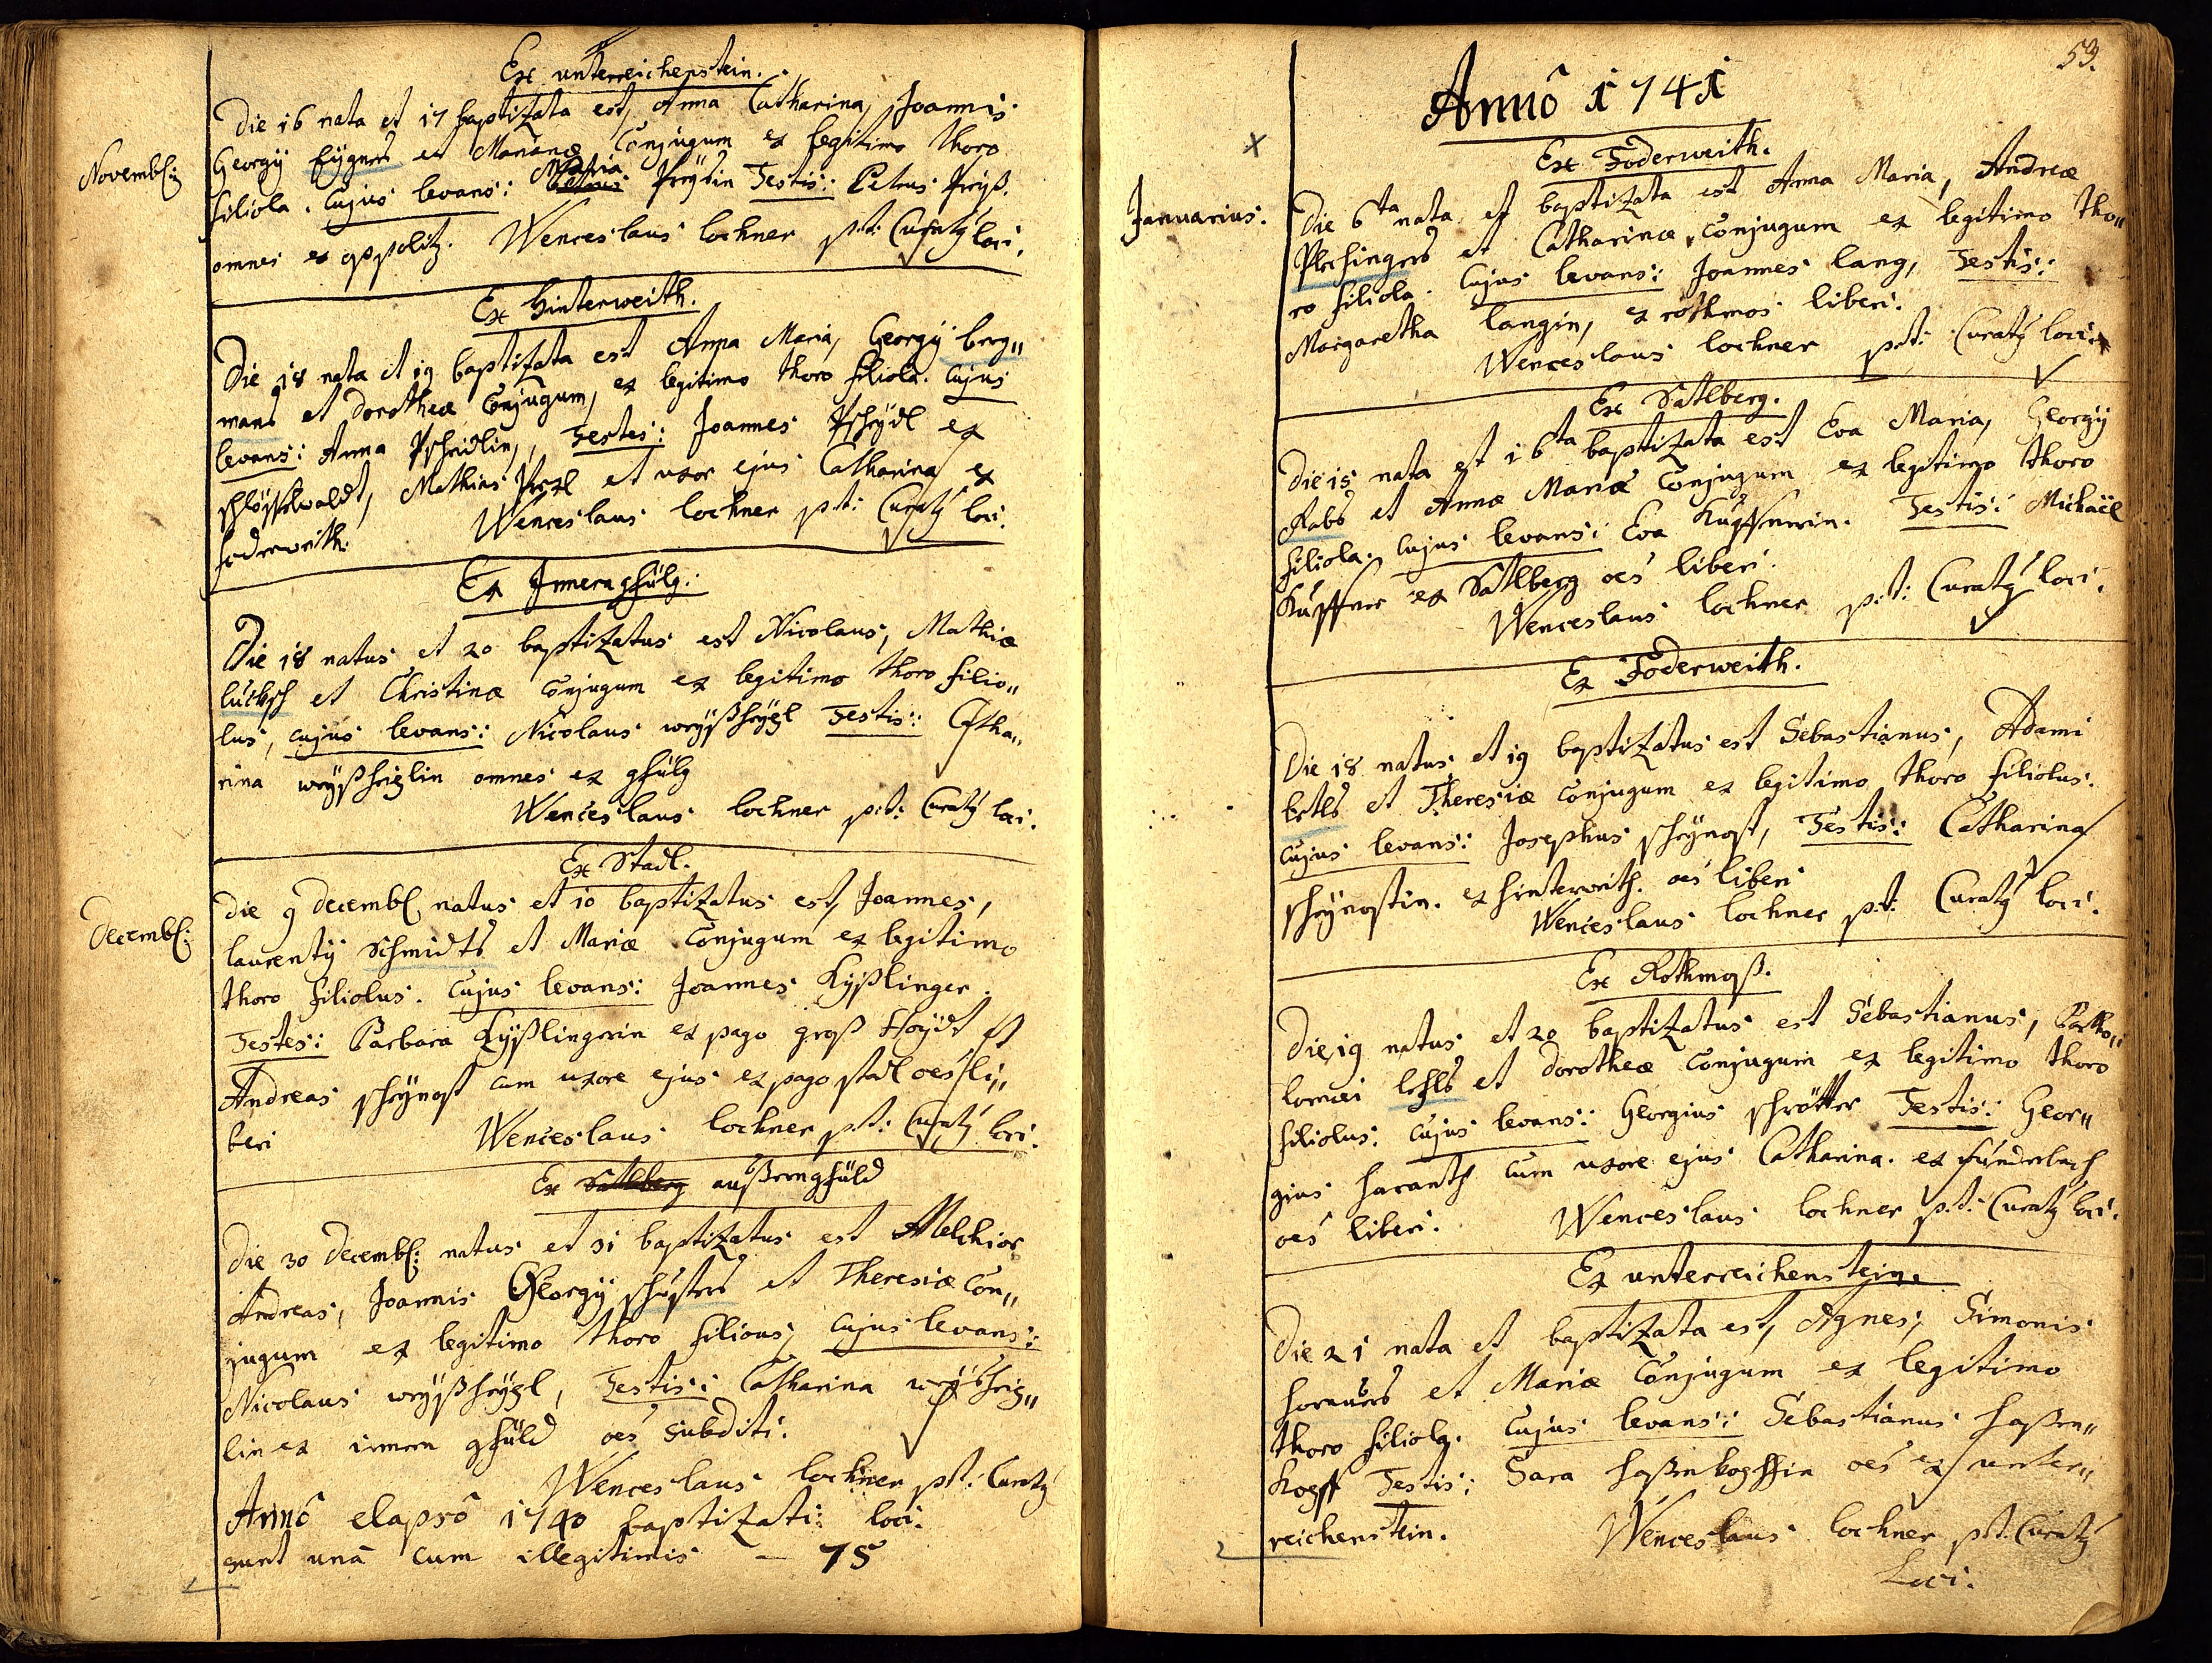 Ex unterreichenstein.
Novemb:
Die 16 nata et 17 baptizata est, Anna Catharina, Joannis
Georgÿ et Marianæ Conjugum ex legitimo thoro
filiola. Cujus levans: Maria Testis: Petrus
omnes ex Wenceslaus lochner p:t: Curatus loci.
Ex Hinterweith.
Die 18 nata et 19 baptizata est Anna Maria, Georgÿ berg„
mans et dorotheæ Conjugum, ex legitimo thoro filiola. Cujus
levans: Anna Pscheidlin, Testes: Joannes Pscheÿdl ex
schlösselwaldt, Mathias et uxor ejus Catharina ex
foderweith. Wenceslaus lochner p:t: Curatus loci.
Ex Innerngfülg.
Die 18 natus et 20 baptizatus est Nicolaus, Mathiæ
lücksch et Christinæ Conjugum ex legitimo thoro filio„
lus, cujus levans: Nicolaus weÿsheÿgl Testis: Catha„
rina weÿsheiglin omnes ex gfülg
Wenceslaus lochner p:t: Curatus loci.
Ex Stadl.
Decemb:
Die 9 decemb natus et 10 baptizatus est, Joannes,
laurentÿ Schmidts et Mariæ Conjugum ex legitimo
thoro filiolus. Cujus levans: Joannes Kÿßlinger.
Testes: Barbara Kÿßlingerin ex pago groß Haÿdt et
Andreas scheÿnost cum uxore ejus ex pago stadl oēs li„
beri Wenceslaus lochner p:t: Curatus loci.
Ex Satlberg außerngfüld
Die 30 decemb: natus et 31 baptizatus est Melchior
Andreas, Joannis Georgÿ schusters et Theresiæ Con„
jugum ex legitimo thoro filious, cujus levans:
Nicolaus weÿsheÿgl, Testis: Catharina weÿsheig„
lin ex innern gfüld oēs subditi.
Wenceslaus lochner p:t: Curatus
loci.
Annô elapsô 1740 baptizati
sunt unà cum illegitimis – 75
59.
Annô 1741
Ex Foderweith.
Januarius.
Die 6ta nata et baptizata est Anna Maria, Andreæ
Plechingers et Catharinæ, Conjugum ex legitimo tho„
ro filiola. Cujus levans: Joannes lang, Testis:
Margaretha langin, ex rothmos liberi.
Wenceslaus lochner p:t: Curatus loci.
Ex Satlberg.
Die 15 nata et 16ta baptizata est Eva Maria, Georgÿ
Rabs et Annæ Mariæ Conjugum ex legitimo thoro
filiola. Cujus levans: Eva Kupfnerin. Testis: Michaël
Kupfner ex Satlberg oēs liberi.
Wenceslaus lochner p:t: Curatus loci.
Ex Foderweith.
Die 18 natus et 19 baptizatus est Sebastianus, Adami
bertls et Theresiæ Conjugum ex legitimo thoro filiolus.
Cujus levans: Josephus scheÿnost, Testis: Catharina
scheÿnostin. ex hinterweith. oēs liberi
Wenceslaus lochner p:t: Curatus loci.
Ex Rothmoß.
Die 19 natus et 20 baptizatus est Sebastianus, Bartho„
lomæi et dorotheæ Conjugum ex legitimo thoro
filiolus. Cujus levans: Georgius schrötter Testis: Geor„
gius haranth cum uxore ejus Catharina. ex sünderbach
oēs liberi. Wenceslaus lochner p:t: Curatus loci.
Ex unterreichenstein.
Die 21 nata et baptizata est, Agnes, Simonis
hornuers et Mariæ Conjugum ex legitimo
thoro filiola. Cujus levans: Sebastianus haßen„
kopff Testis: Sara haßenkopffin oēs ex unter„
reichenstein. Wenceslaus lochner p:t: Curatus
Loci.